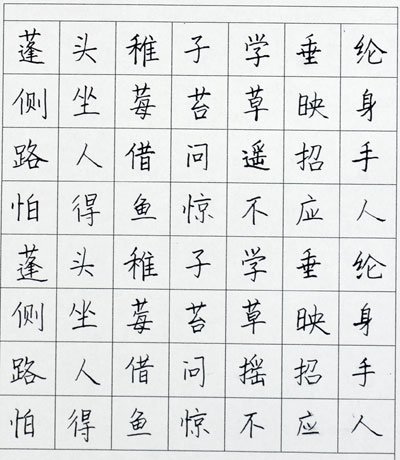 蓬头稚子学垂纶
侧坐莓苔草映身
路人借问遥招手
怕得鱼惊不应人
蓬头稚子学垂纶
侧坐莓苔草映身
路人借问摇招手
怕得鱼惊不应人